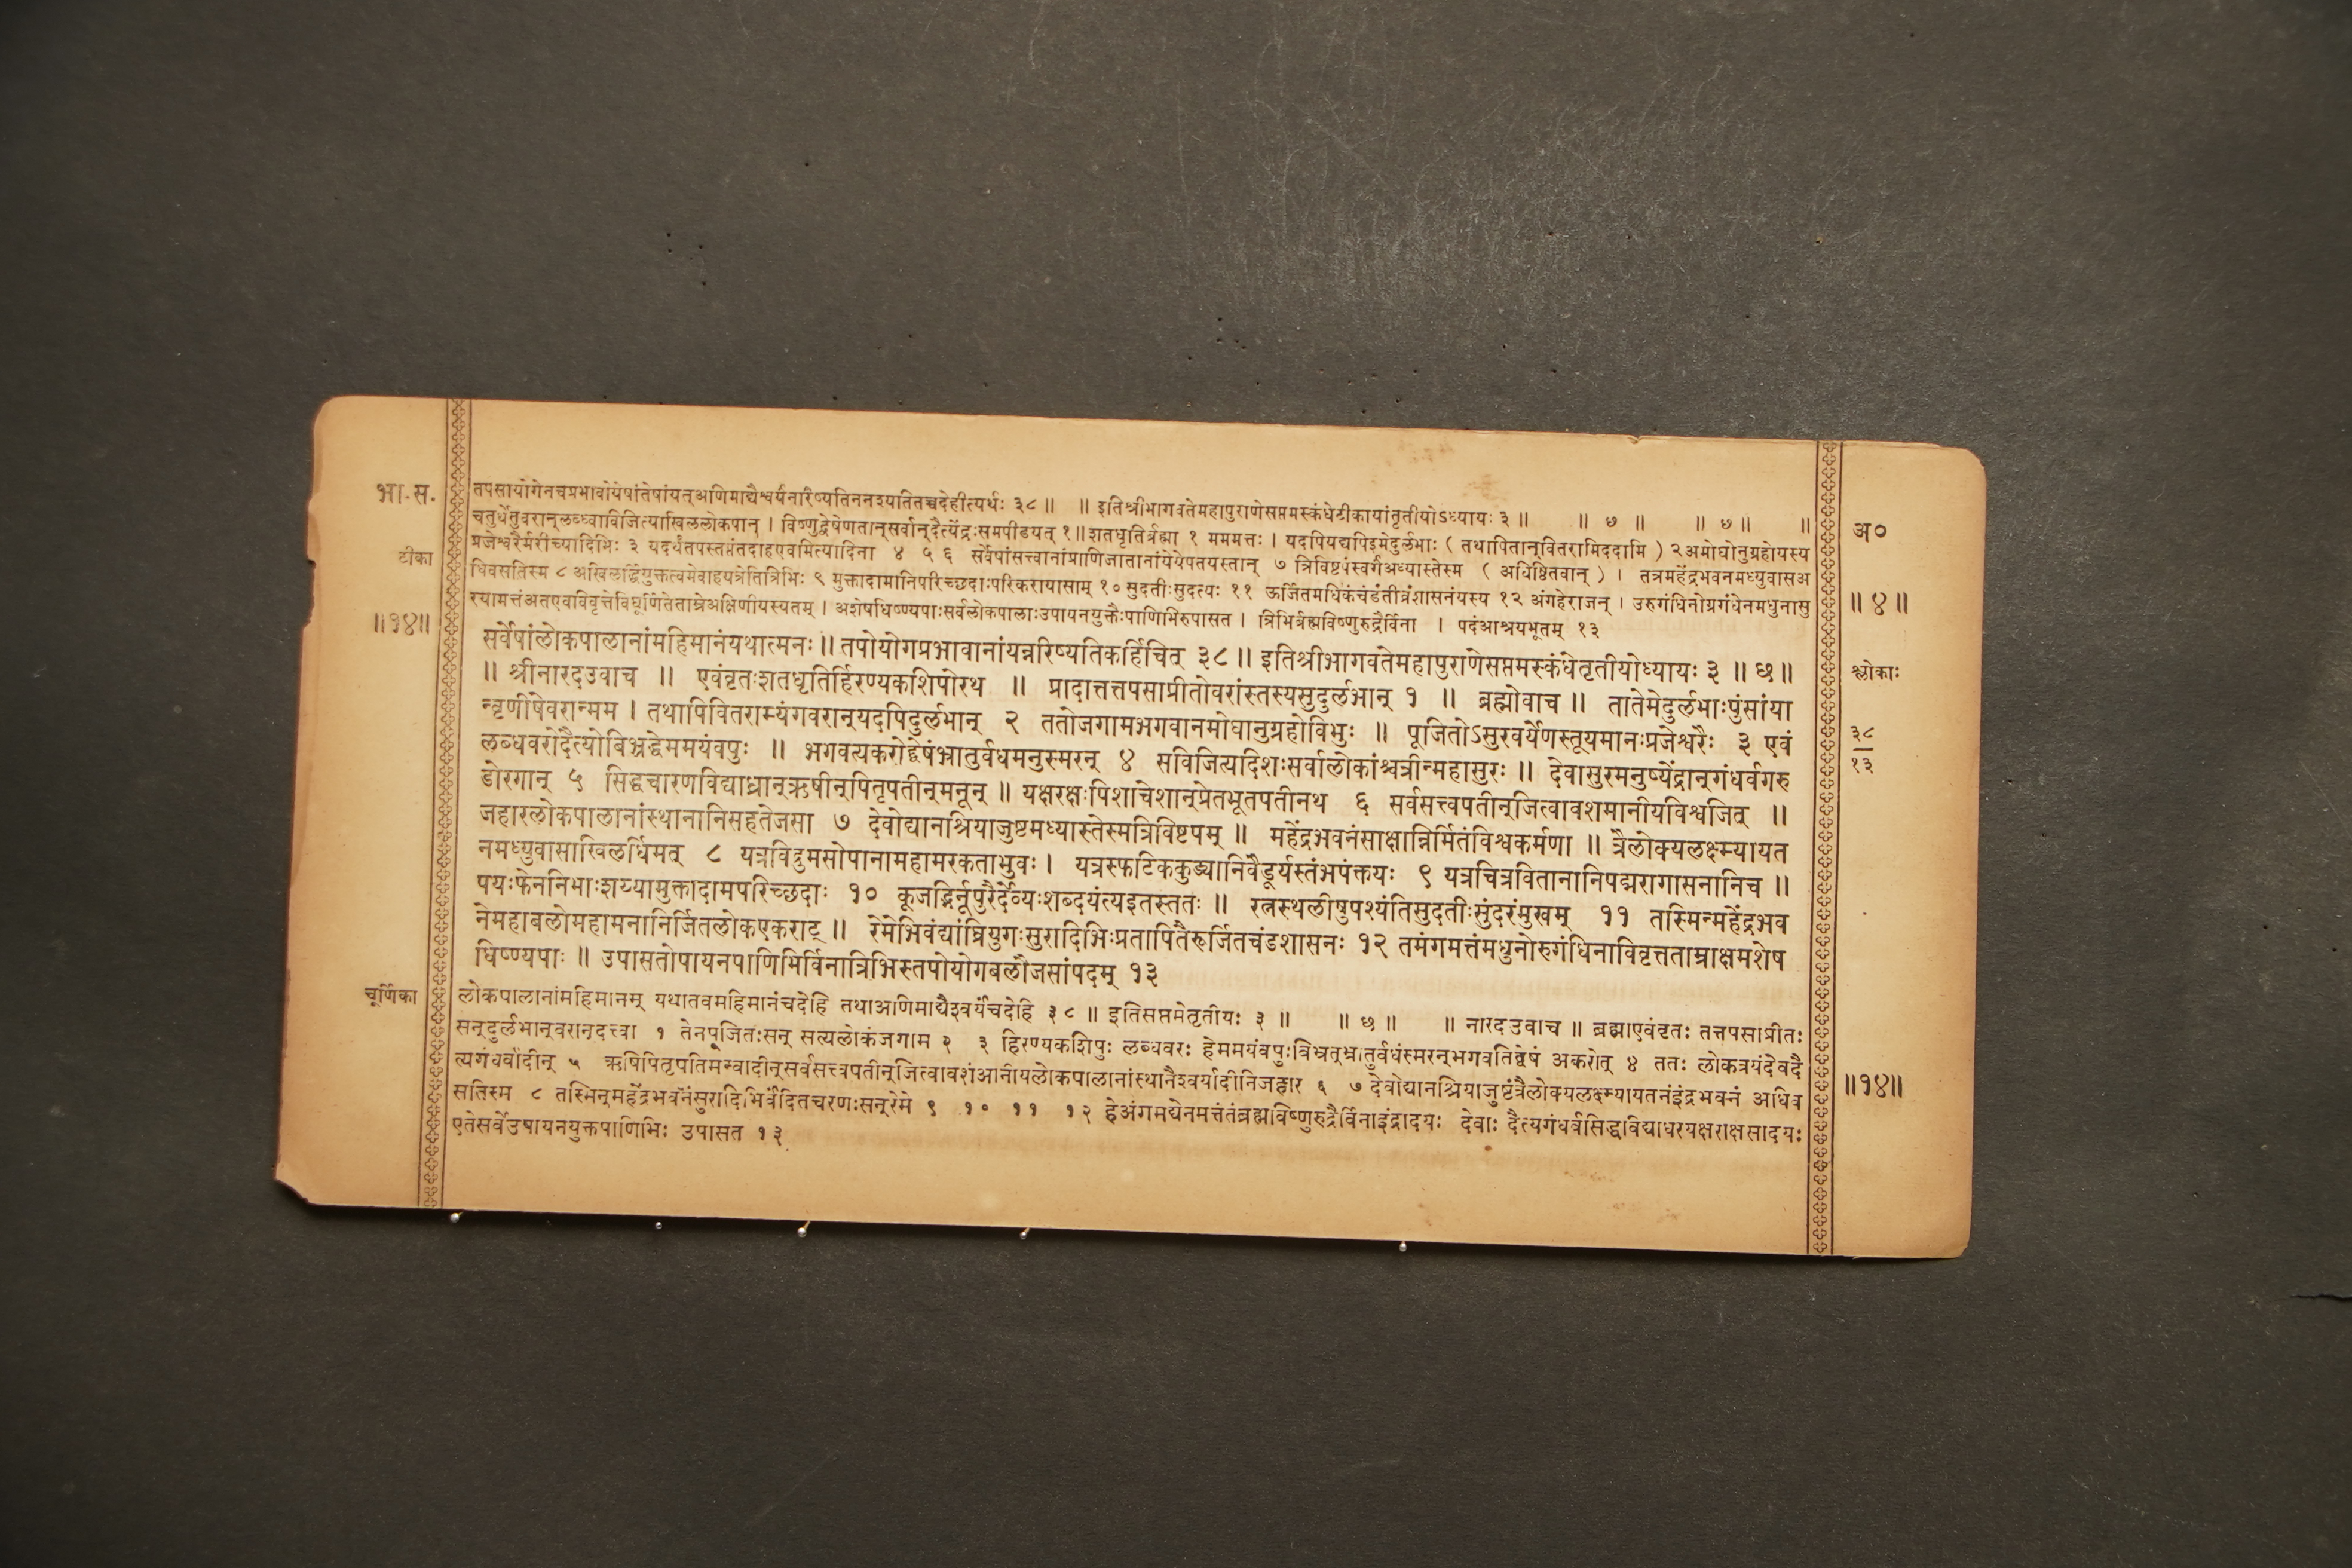 भा. स.
तपसायोगेनचप्रभावोयेषांतेषांयत्अणिमाद्यैश्वर्यंनारिष्यतिननश्यतितच्चदेहीत्यर्थः ३८ ॥ ॥ इतिश्रीभागवतेमहापुराणेसप्तमस्कंधेटीकायांतृतीयोऽध्यायः ३ ॥ ॥ ७ ॥ ॥ ७ ॥ ॥
अ०
चतुर्थेतुवरान्लब्ध्वाविजित्याखिललोकपान् । विष्णुद्वेषेणतान्सर्वान्दैत्येंद्रःसमपीडयत् १॥ शतधृतिर्ब्रह्मा १ मममत्तः । यदपियद्यपिइमेदुर्लभाः ( तथापितान्वितरामिददामि ) २ अमोघोनुग्रहोयस्य
टीका
प्रजेश्वरैर्मरीच्यादिभिः ३ यदर्थंतपस्तप्तंतदाहएवमित्यादिना ४ ५ ६ सर्वेषांसत्त्वानांप्राणिजातानांयेयेपतयस्तान् ७ त्रिविष्टपंस्वर्गंअध्यास्तेस्म ( अधिष्ठितवान् ) । तत्रमहेंद्रभवनमध्युवासअ
धिवसतिस्म ८ अखिलर्द्धियुक्तत्वमेवाहयत्रेतित्रिभिः ९ मुक्तादामानिपरिच्छदाःपरिकरायासाम् १० सुदतीःसुदत्यः ११ ऊर्जितमधिकंचंडंतीव्रंशासनंयस्य १२ अंगहेराजन् । उरुगंधिनोग्रगंधेनमधुनासु
॥ ४ ॥
॥१४॥
रयामत्तंअतएवविवृत्तेविघूर्णितेताम्रेअक्षिणीयस्यतम् । अशेषधिष्ण्यपाःसर्वलोकपालाःउपायनयुक्तैःपाणिभिरुपासत । त्रिभिर्ब्रह्मविष्णुरुद्रैर्विना । पदंआश्रयभूतम् १३
सर्वेषांलोकपालानांमहिमानंयथात्मनः ॥ तपोयोगप्रभावानांयन्नरिष्यतिकर्हिचित् ३८ ॥ इतिश्रीभागवतेमहापुराणेसप्तमस्कंधेतृतीयोध्यायः ३ ॥ छ ॥
श्लोकाः
॥ श्रीनारदउवाच ॥ एवंवृतःशतधृतिर्हिरण्यकशिपोरथ ॥ प्रादात्तत्तपसाप्रीतोवरांस्तस्यसुदुर्लभान् १ ॥ ब्रह्मोवाच ॥ तातेमेदुर्लभाःपुंसांया
न्वृणीषेवरान्मम । तथापिवितराम्यंगवरान्यदपिदुर्लभान् २ ततोजगामभगवानमोघानुग्रहोविभुः ॥ पूजितोऽसुरवर्येणस्तूयमानःप्रजेश्वरैः ३ एवं
३८
१३
लब्धवरोदैत्योबिभ्रद्धेममयंवपुः ॥ भगवत्यकरोद्द्वेषंभ्रातुर्वधमनुस्मरन् ४ सविजित्यदिशःसर्वालोकांश्चत्रीन्महासुरः ॥ देवासुरमनुष्येंद्रान्गंधर्वगरु
डोरगान् ५ सिद्धचारणविद्याध्रान्ऋषीन्पितृपतीन्मनून् ॥ यक्षरक्षःपिशाचेशान्प्रेतभूतपतीनथ ६ सर्वसत्त्वपतीन्जित्वावशमानीयविश्वजित् ॥
जहारलोकपालानांस्थानानिसहतेजसा ७ देवोद्यानश्रियाजुष्टमध्यास्तेस्मत्रिविष्टपम् ॥ महेंद्रभवनंसाक्षान्निर्मितंविश्वकर्मणा ॥ त्रैलोक्यलक्ष्म्यायत
नमध्युवासाखिलर्धिमत् ८ यत्रविद्रुमसोपानामहामरकताभुवः । यत्रस्फटिककुड्यानिवैडूर्यस्तंभपंक्तयः ९ यत्रचित्रवितानानिपद्मरागासनानिच ॥
पयःफेननिभाःशय्यामुक्तादामपरिच्छदाः १० कूजद्भिर्नूपुरैर्देव्यःशब्दयंत्यइतस्ततः ॥ रत्नस्थलीषुपश्यंतिसुदतीःसुंदरंमुखम् ११ तस्मिन्महेंद्रभव
नेमहाबलोमहामनानिर्जितलोकएकराट् ॥ रेमेभिवंद्यांघ्रियुगःसुरादिभिःप्रतापितैरूर्जितचंडशासनः १२ तमंगमत्तंमधुनोरुगंधिनाविवृत्तताम्राक्षमशेष
धिष्ण्यपाः ॥ उपासतोपायनपाणिभिर्विनात्रिभिस्तपोयोगबलौजसांपदम् १३
चूर्णिका
लोकपालानांमहिमानम् यथातवमहिमानंचदेहि तथाअणिमाद्यैश्वर्यंचदेहि ३८ ॥ इतिसप्तमेतृतीयः ३ ॥ ॥ छ ॥ ॥ नारदउवाच ॥ ब्रह्माएवंवृतः तत्तपसाप्रीतः
सन्दुर्लभान्वरान्दत्त्वा १ तेनपूजितःसन् सत्यलोकंजगाम २ ३ हिरण्यकशिपुः लब्धवरः हेममयंवपुःबिभ्रत्भ्रातुर्वधंस्मरन्भगवतिद्वेषं अकरोत् ४ ततः लोकत्रयंदेवदै
त्यगंधर्वादीन् ५ ऋषिपितृपतिमन्वादीन्सर्वसत्त्वपतीन्जित्वावशंआनीयलोकपालानांस्थानैश्वर्यादीनिजहार ६ ७ देवोद्यानश्रियाजुष्टंत्रैलोक्यलक्ष्म्यायतनंइंद्रभवनं अधिव
॥१४॥
सतिस्म ८ तस्मिन्महेंद्रभवनेसुरादिभिर्वंदितचरणःसन्रेमे ९ १० ११ १२ हेअंगमद्येनमत्तंतंब्रह्मविष्णुरुद्रैर्विनाइंद्रादयः देवाः दैत्यगंधर्वसिद्धविद्याधरयक्षराक्षसादयः
एतेसर्वेउपायनयुक्तपाणिभिः उपासत १३